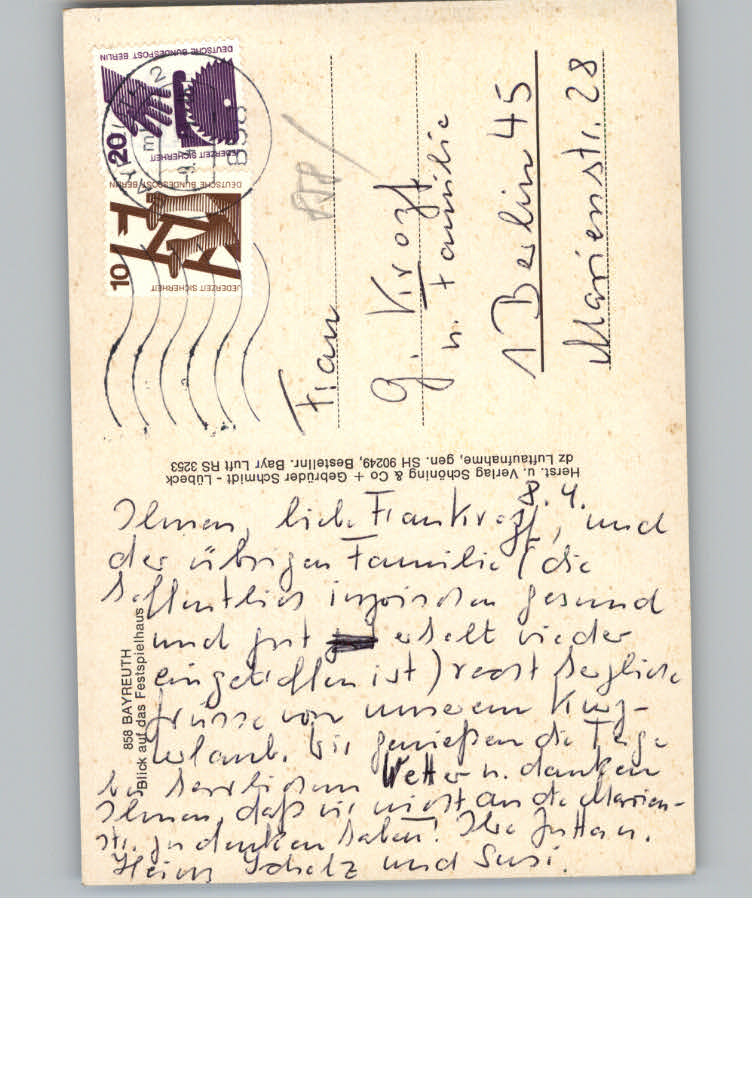 DEUTSCHE BUNDESPOST BERLIN
20
JEDERZEIT SICHERHEIT
DEUTSCHE BUNDESPOST BERLIN
10
JEDERZEIT SICHERHEIT
858
Frau
G. Krozt
u. Familie
1 Berlin 45
Marienstr. 28
Herst. u. Verlag Schöning & Co + Gebrüder Schmidt - Lübeck
dz Luftaufnahme, gen. SH 90249, Bestellnr. Bayr Luft RS 3253
858 BAYREUTH
Blick auf das Festspielhaus
8. 4.
Ihnen, liebe Frau Krozt, und
der übrigen Familie (die
hoffentlich inzwischen gesund
und gut erholt wieder
eingetroffen ist) recht herzliche
Grüsse von unserem Kurz-
urlaub. Wir genießen die Tage
bei herrlichem Wetter u. danken
Ihnen, daß wir nicht an die Marien-
str. zu denken haben! Ihre Jutta u.
Heinz Scholz und Susi.